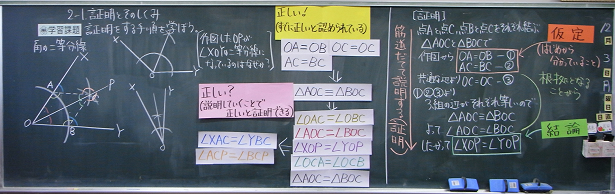 2-1. 証明とそのしくみ
学習課題
証明をする手順を学ぼう。
角の二等分線
X
A
P
O
B
Y
X
Y
O
X
Y
作図はOPが
∠XOPの二等分線に
なっているのはなぜか?
正しい!
(すでに正しいと認められている)
OA=OB OC=OC
AC=BC
△AOC≡△BOC
正しい?
(説明していくことで
正しいと証明できる)
∠XAC=∠YBC
∠ACP=∠BCP
∠OAC=∠OBC
∠AOC=∠BOC
∠XOP=∠YOP
∠OCA=∠OCB
△AOC=△BOC
筋道だてて説明する(証明)
[証明]
点Aと点C、点Bと点Cをそれぞれ結ぶ
△AOCと△BOCで
作図から OA=OB-①
AC=BC-②
共通だから OC=OC-③
①②③より
3組の辺がそれぞれ等しいので
△AOC≡△BOC
よって ∠AOC=∠BOC
したがって ∠XOP=∠YOP
仮定
(はじめから
分かっていること)
根拠となる
ことがら
結論
12
月
3
日